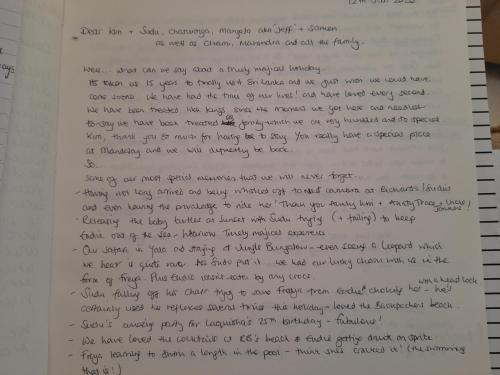 12th Jan 2022
Dear Kim + Sudu, Chaturanga, Mangala aka 'Jeff' + Saman
as well as Chami, Mahindra and all the family.
Well... what can we say about a truly magical holiday.
Its taken us 15 years to finally visit Sri Lanka and we just wish we would have
come sooner. We have had the time of our lives! and have loved every second.
We have been treated like kings since the moment we got here and needless
to say we have been treated as family which we are very humbled and so special
Kim, thank you so much for having us to stay. You really have a special place
at Mandalay and we will definitely be back.
So...
Some of our most special memories that we will never forget...
- Having not long arrived and being whisked off to meet camera at Richard's/Sudus
and even having the priviledge to ride her! Thank you Aunty Kim + Aunty Tracey + Uncle
- Releasing the baby turtles at sunset with Sudu trying (+ failing) to keep
Eadie out of the sea - hilarious. Truely magical experience
- Our Safari in Yala and staying at Jungle Bungalow - even seeing a leopard which
we hear is quite rare. As Sudu put it.. we had our lucky charm with us in the
form of Freya. Plus Eadie wasn't eaten by any crocs.
- Sudu falling off his chair trying to save Freya from Eadie choking her - he's
with a head lock
certainly used his reflexes several times this holiday - loved the Backpackers beach.
- Sudu's amazing party for Laquisha's 25th birthday - fabulous!
- We have loved the cocktails at KB's beach & Eadie getting drunk on sprite
- Freya learning to swim a length in the pool - think she's cracked it! (the swimming
that is!)